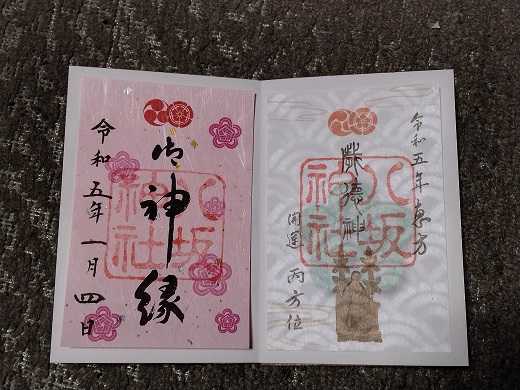 令和五年一月四日
御神縁
八坂
神社
令和五年恵方
歳徳神
開運 丙方位
八坂
神社